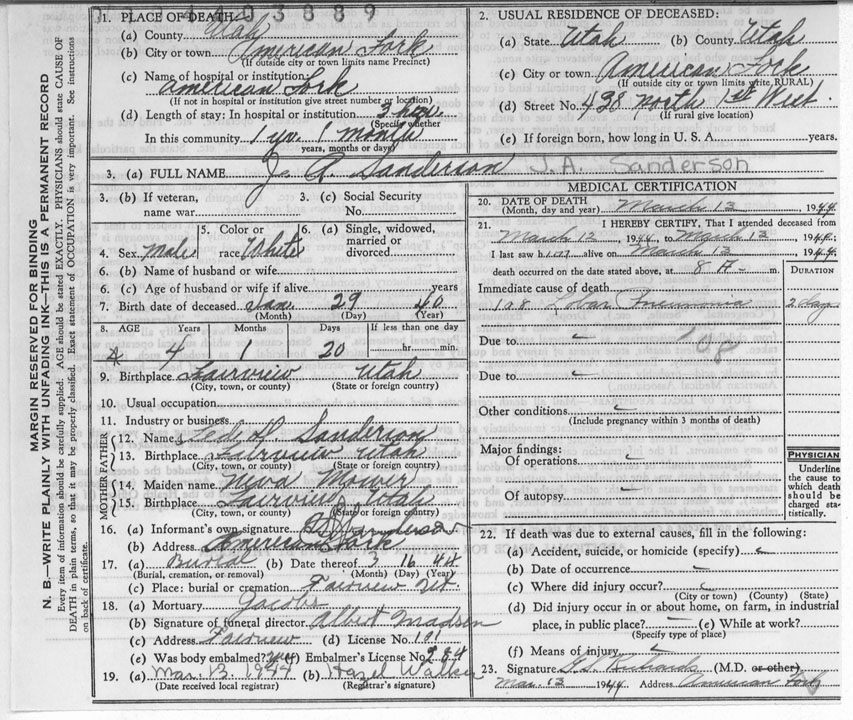 403889
MARGIN RESERVED FOR BINDING
N. B.—WRITE PLAINLY WITH UNFADING INK—THIS IS A PERMANENT RECORD
Every item of information should be carefully supplied. AGE should be stated EXACTLY. PHYSICIANS should state CAUSE OF
DEATH in plain terms, so that it may be properly classified. Exact statement of OCCUPATION is very important. See instructions
on back of certificate.
1. PLACE OF DEATH:
(a) County Utah
(b) City or town American Fork
(If outside city or town limits name Precinct)
(c) Name of hospital or institution:
American Fork
(If not in hospital or institution give street number or location)
(d) Length of stay: In hospital or institution 3 hrs.
(Specify whether
In this community 1 yr. 1 month
years, months or days)
2. USUAL RESIDENCE OF DECEASED:
(a) State Utah (b) County Utah
(c) City or town American Fork
(If outside city or town limits write RURAL)
(d) Street No. 438 North 1st West
(If rural give location)
(e) If foreign born, how long in U. S. A. years.
3. (a) FULL NAME J. A. Sanderson J.A. Sanderson
3. (b) If veteran, name war
3. (c) Social Security No.
4. Sex Male
5. Color or race White
6. (a) Single, widowed, married or divorced
6. (b) Name of husband or wife
6. (c) Age of husband or wife if alive years
7. Birth date of deceased Jan. 29 40
(Month) (Day) (Year)
8. AGE Years Months Days If less than one day
4 1 20 hr. min.
9. Birthplace Fairview Utah
(City, town, or county) (State or foreign country)
10. Usual occupation
11. Industry or business
FATHER
12. Name Sanderson
13. Birthplace Fairview Utah
(City, town, or county) (State or foreign country)
MOTHER
14. Maiden name Neva Mower
15. Birthplace Fairview Utah
(City, town, or county) (State or foreign country)
16. (a) Informant's own signature Sanderson
(b) Address American Fork
17. (a) Burial (b) Date thereof 3 16 44
(Burial, cremation, or removal) (Month) (Day) (Year)
(c) Place: burial or cremation Fairview Ut.
18. (a) Mortuary Jacobs
(b) Signature of funeral director Albert Madsen
(c) Address Fairview (d) License No. 101
(e) Was body embalmed? yes (f) Embalmer's License No. 284
19. (a) Mar. 13. 1944 (b) Hazel Walker
(Date received local registrar) (Registrar's signature)
MEDICAL CERTIFICATION
20. DATE OF DEATH
(Month, day and year) March 13, 1944
21. I HEREBY CERTIFY, That I attended deceased from
March 12, 1944, to March 13, 1944;
I last saw him alive on March 13, 1944,
death occurred on the date stated above, at 8 A m.
DURATION
Immediate cause of death
108 Lobar Pneumonia 2 days
Due to
108
Due to
Other conditions
(Include pregnancy within 3 months of death)
Major findings:
Of operations
Of autopsy
PHYSICIAN
Underline
the cause to
which death
should be
charged sta-
tistically.
22. If death was due to external causes, fill in the following:
(a) Accident, suicide, or homicide (specify)
(b) Date of occurrence
(c) Where did injury occur?
(City or town) (County) (State)
(d) Did injury occur in or about home, on farm, in industrial
place, in public place? (e) While at work?
(Specify type of place)
(f) Means of injury
23. Signature (M.D. or other)
Mar. 13 1944 Address American Fork